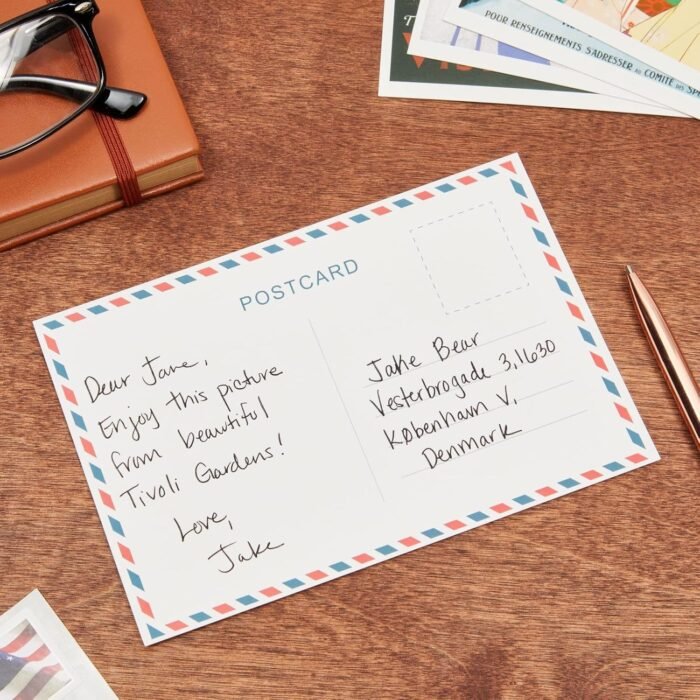 POUR RENSEIGNEMENTS S'ADRESSER AU COMITÉ DES
POSTCARD
Dear Jane,
Enjoy this picture
from beautiful
Tivoli Gardens!
Love,
Jake
Jake Bear
Vesterbrogade 3,1630
København V,
Denmark